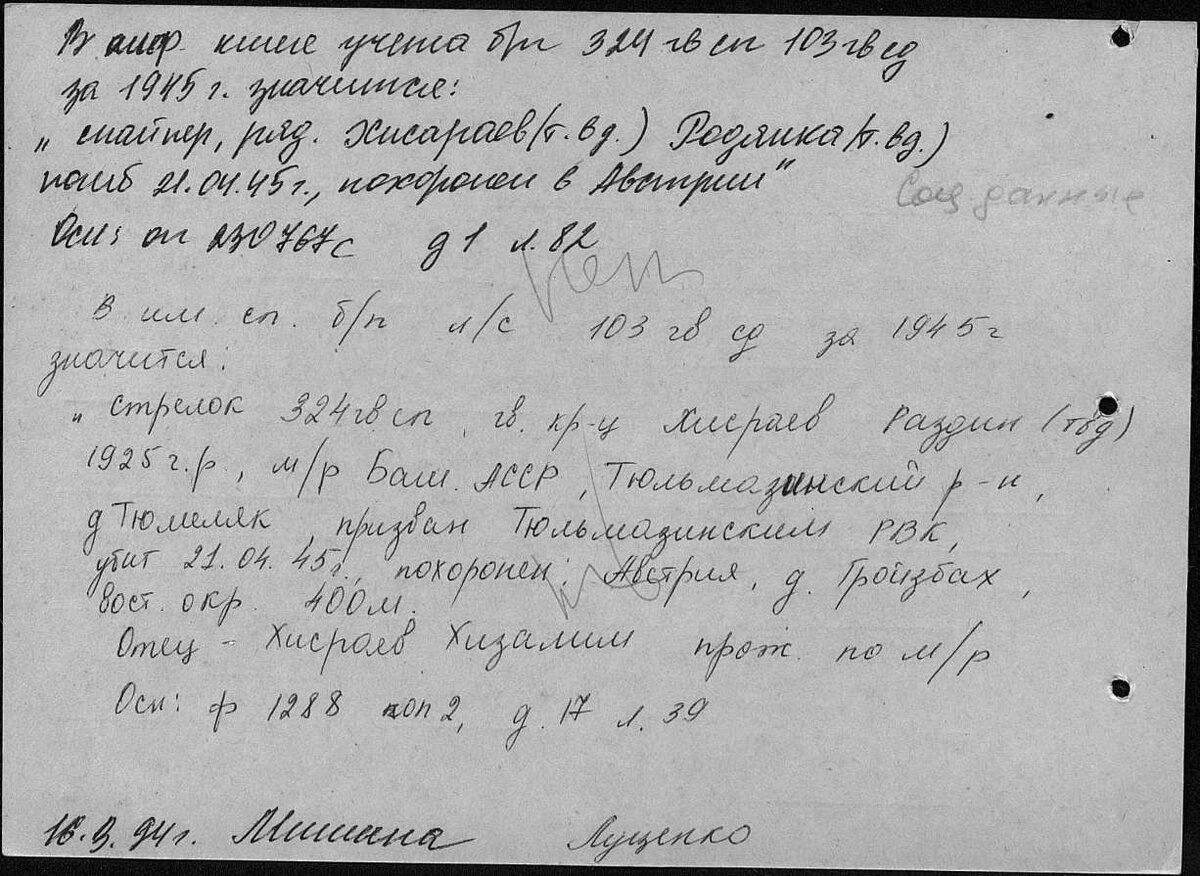 В алф. книге учета б/п 324 гв сп 103 гв сд
за 1945 г. значится:
„ снайпер, ряд. Хисараев (т. в д.) Родямка (т. в д.)
погиб 21.04.45 г., похоронен в Австрии"
Соц данные
Осн: оп 230767с д 1 л. 82
В им. сп. б/п л/с 103 гв сд за 1945 г
значится:
„ стрелок 324 гв сп, гв. кр-ц Хисраев Раздин (твд)
1925 г.р., м/р Баш. АССР, Тюльмазинский р-н,
д Тюмеляк, призван Тюльмазинским РВК,
убит 21.04.45г., похоронен: Австрия, д. Гройзбах,
вост. окр. 400 м.
Отец - Хисраев Хизамим прож. по м/р
Осн: ф 1288 оп 2, д. 17 л. 39
94 г. Мишина Лущенко